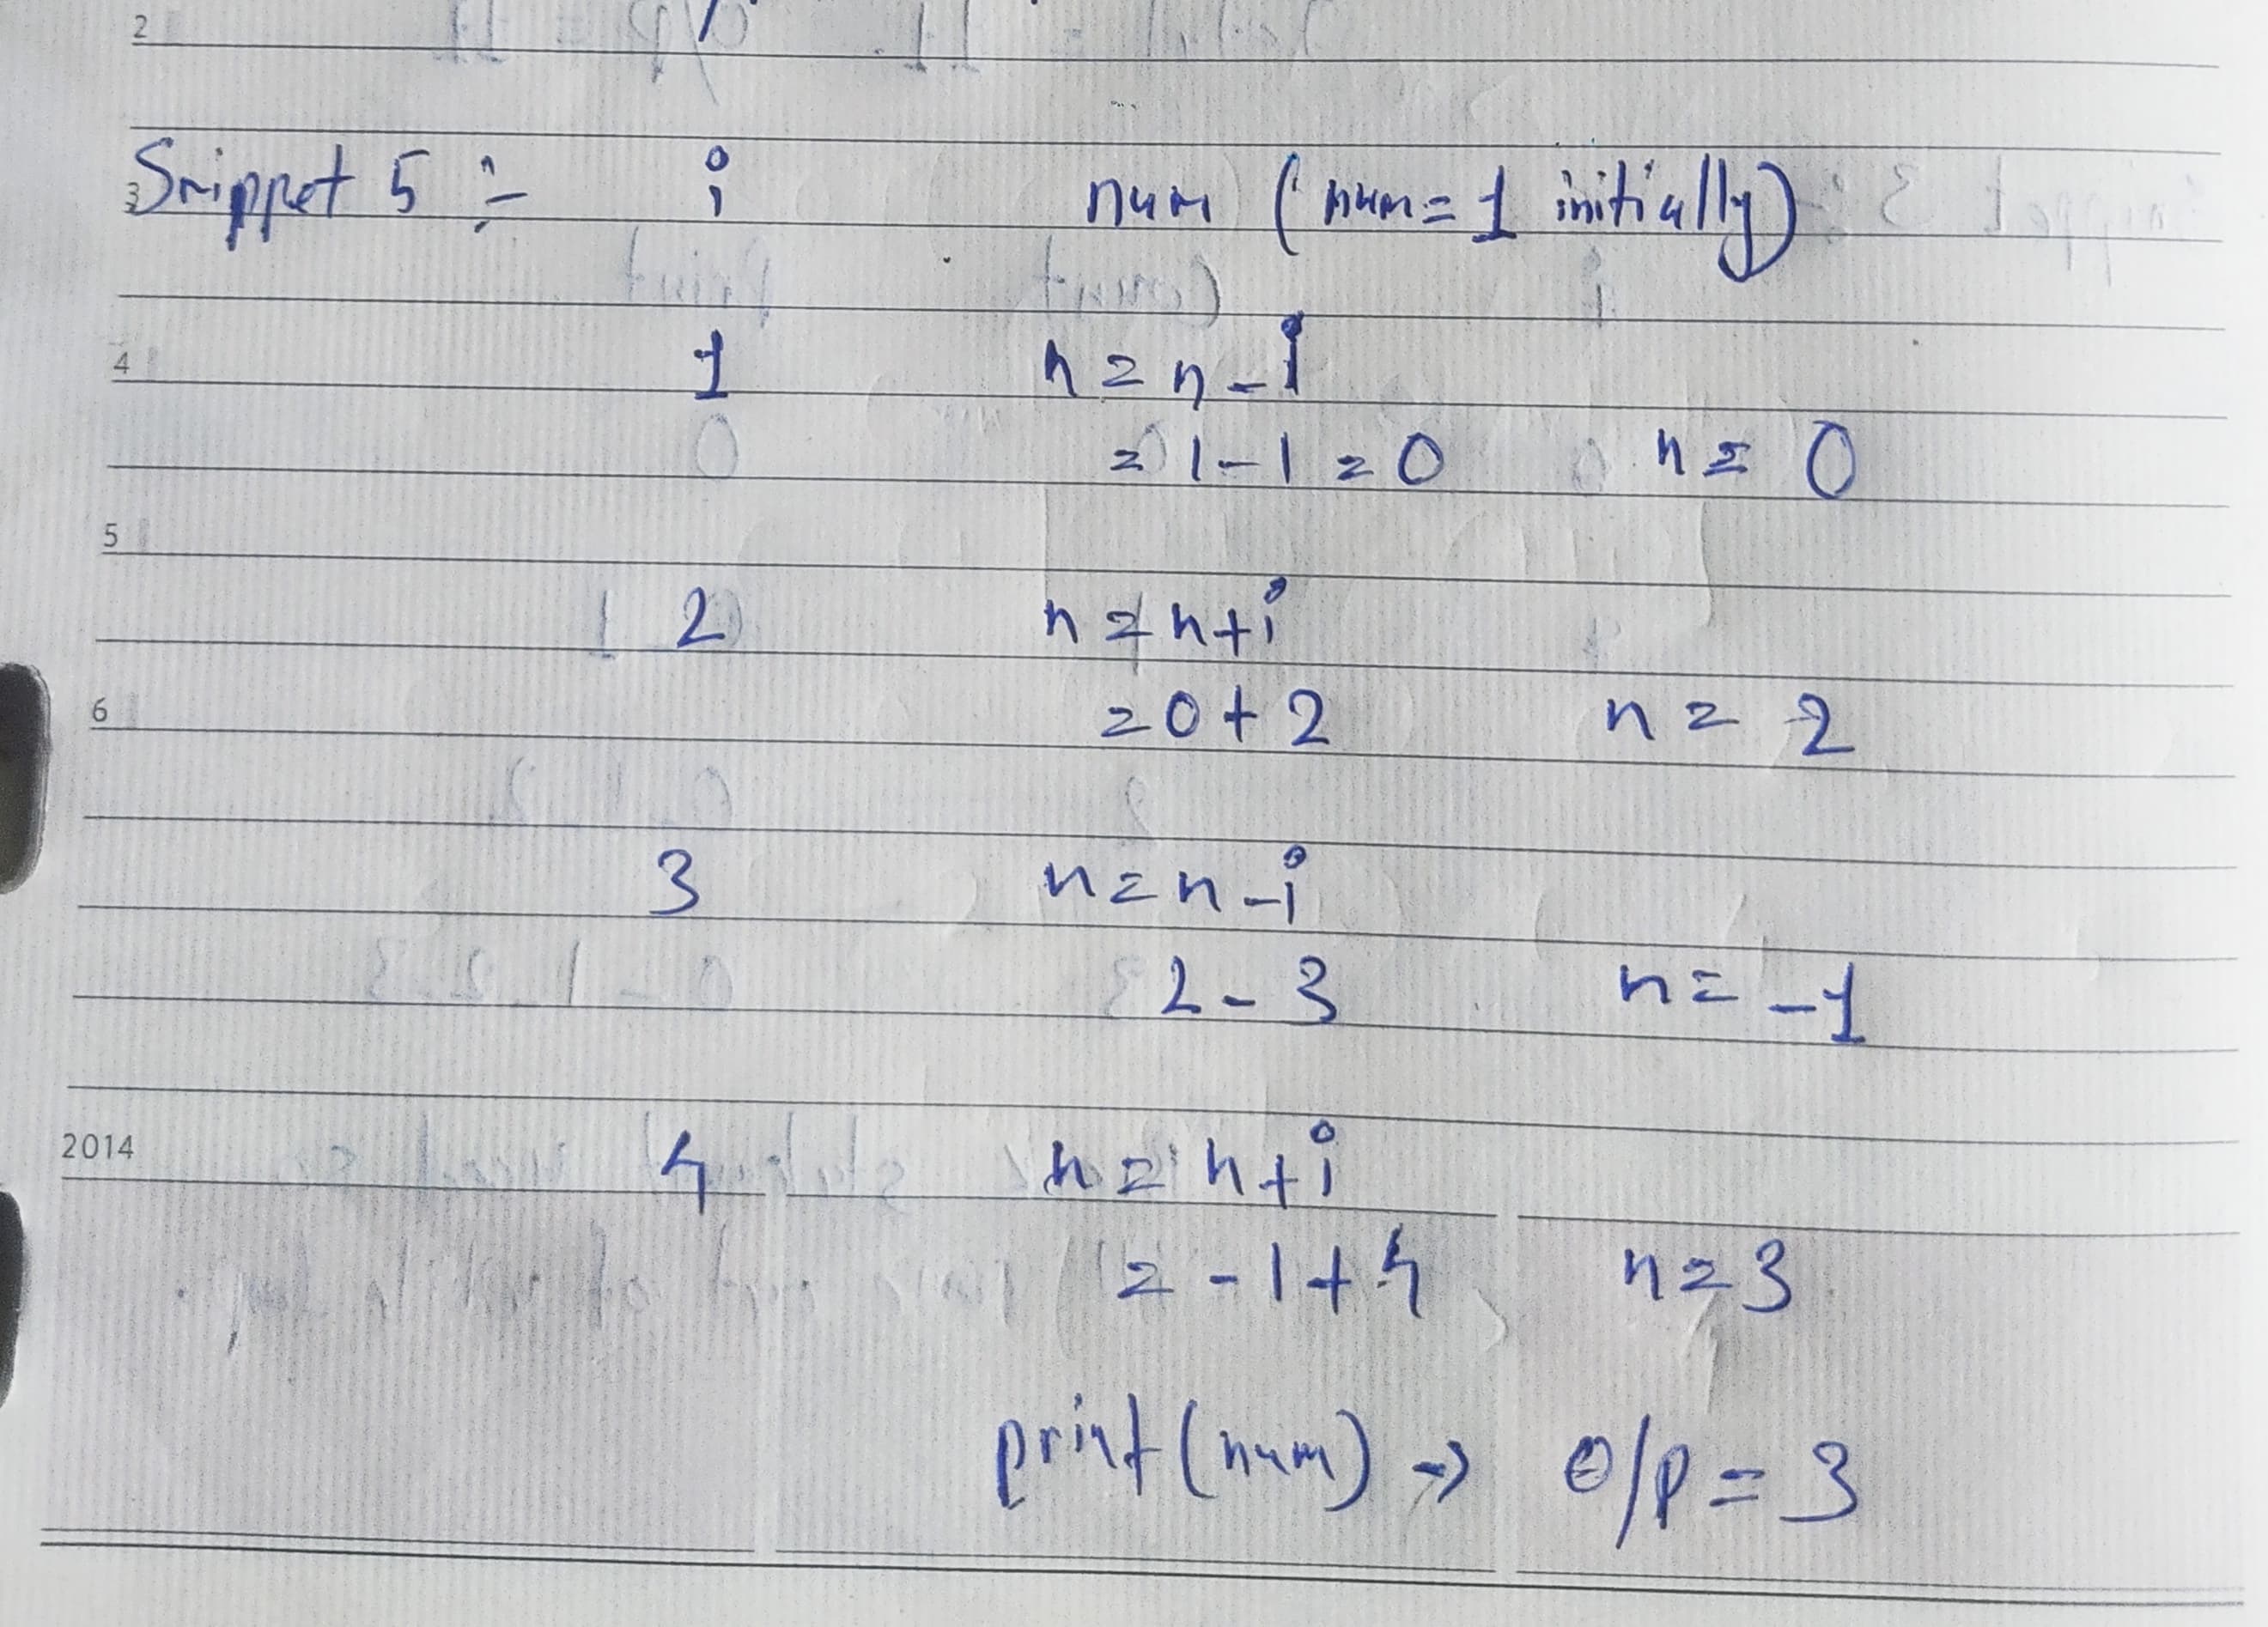 2
3 Snippet 5 :- i num (num=1 initially)
4 1 n = n - i
= 1-1 = 0 n = 0
5
2 n = n+i
6 = 0+2 n = 2
3 n = n-i
2-3 n = -1
2014 4 n = n+i
= -1+4 n = 3
print(num) → O/P = 3